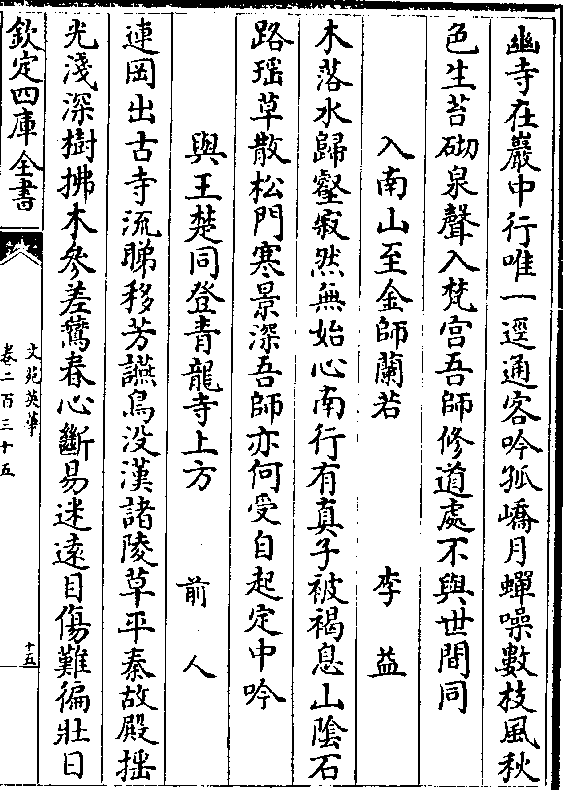 幽寺在巖中行唯一逕通客吟孤嶠月蟬噪數枝風秋
色生苔砌泉聲入梵宫吾師修道處不與世間同
入南山至金師蘭若 李益
木落水歸壑寂然無始心南行有真子被褐息山隂石
路瑶草散松門寒景深吾師亦何受自起定中吟
與王楚同登青龍寺上方 前人
連岡出古寺流睇移芳讌鳥没漢諸陵草平秦故殿揺
光淺深樹拂木參差鷰春心斷易迷逺目傷難徧壯日
欽定四庫全書
文苑英華
卷二百三十五
十五